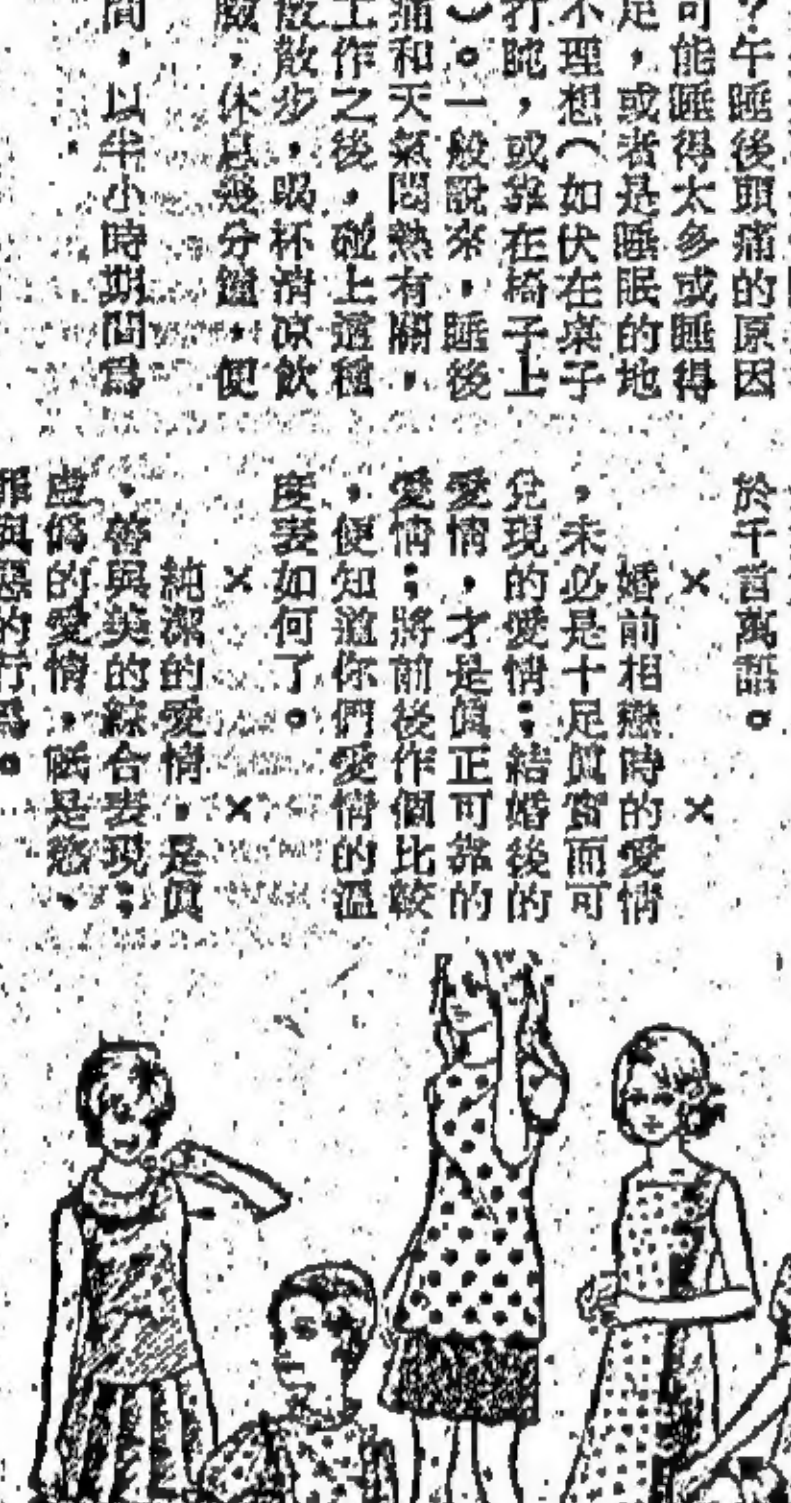 ？午睡後頭痛的原因
可能睡得太多或睡得
足，或者是睡眠的地
不理想（如伏在桌子
打盹，或靠在椅子上
）。一般說來，睡後
痛和天氣悶熱有關，
工作之後，碰上這種
散散步，喝杯清凉飲
臉，休息幾分鐘，便
間，以半小時期間爲
於千言萬語。
×　×
婚前相戀時的愛情
，未必是十足眞實而可
兌現的愛情；結婚後的
愛情，才是眞正可靠的
愛情；將前後作個比較
，便知道你們愛情的溫
度表如何了。
×　×
純潔的愛情，是眞
，善與美的綜合表現；
虛僞的愛情，祇是慾，
罪與惡的行爲。